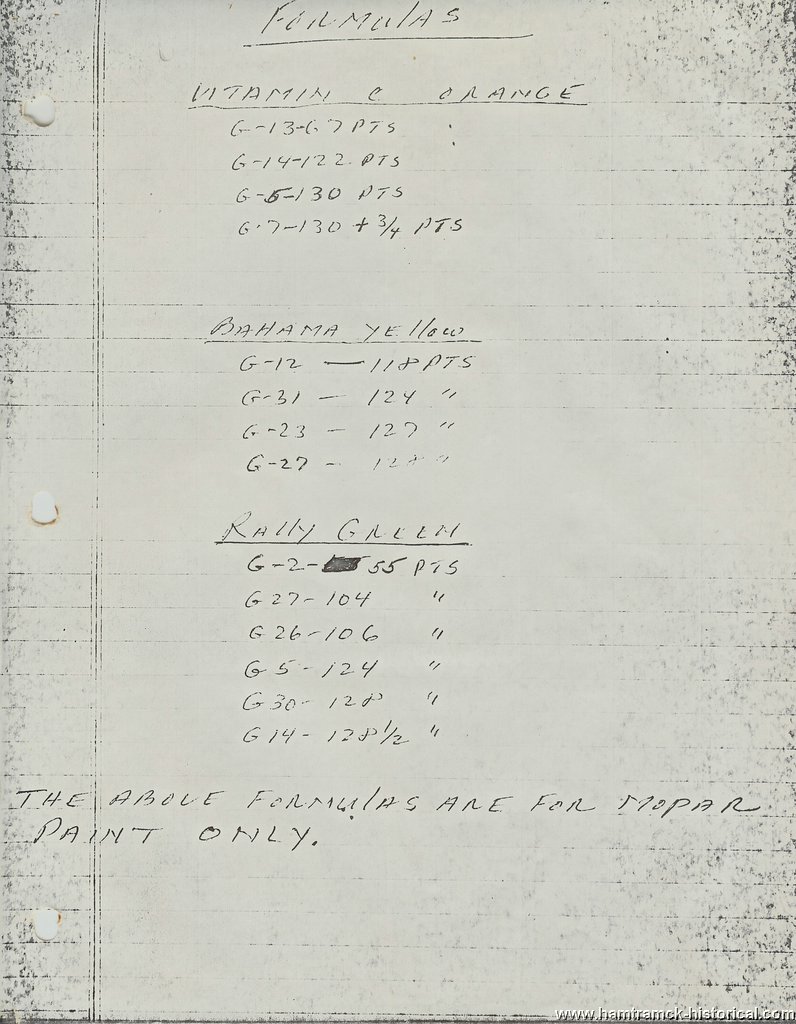 FORMULAS
VITAMIN C ORANGE
G-13-67 PTS
G-14-122 PTS
G-5-130 PTS
G-7-130 + 3/4 PTS
BAHAMA YEllow
G-12 — 118 PTS
G-31 — 124 "
G-23 - 127 "
G-27 - 128 "
RAlly GREEN
G-2- 55 PTS
G27-104 "
G26-106 "
G5-124 "
G30-128 "
G14-128 1/2 "
THE ABOVE FORMUlAS ARE FOR MOPAR
PAINT ONLY.
www.hamtramck-historical.com